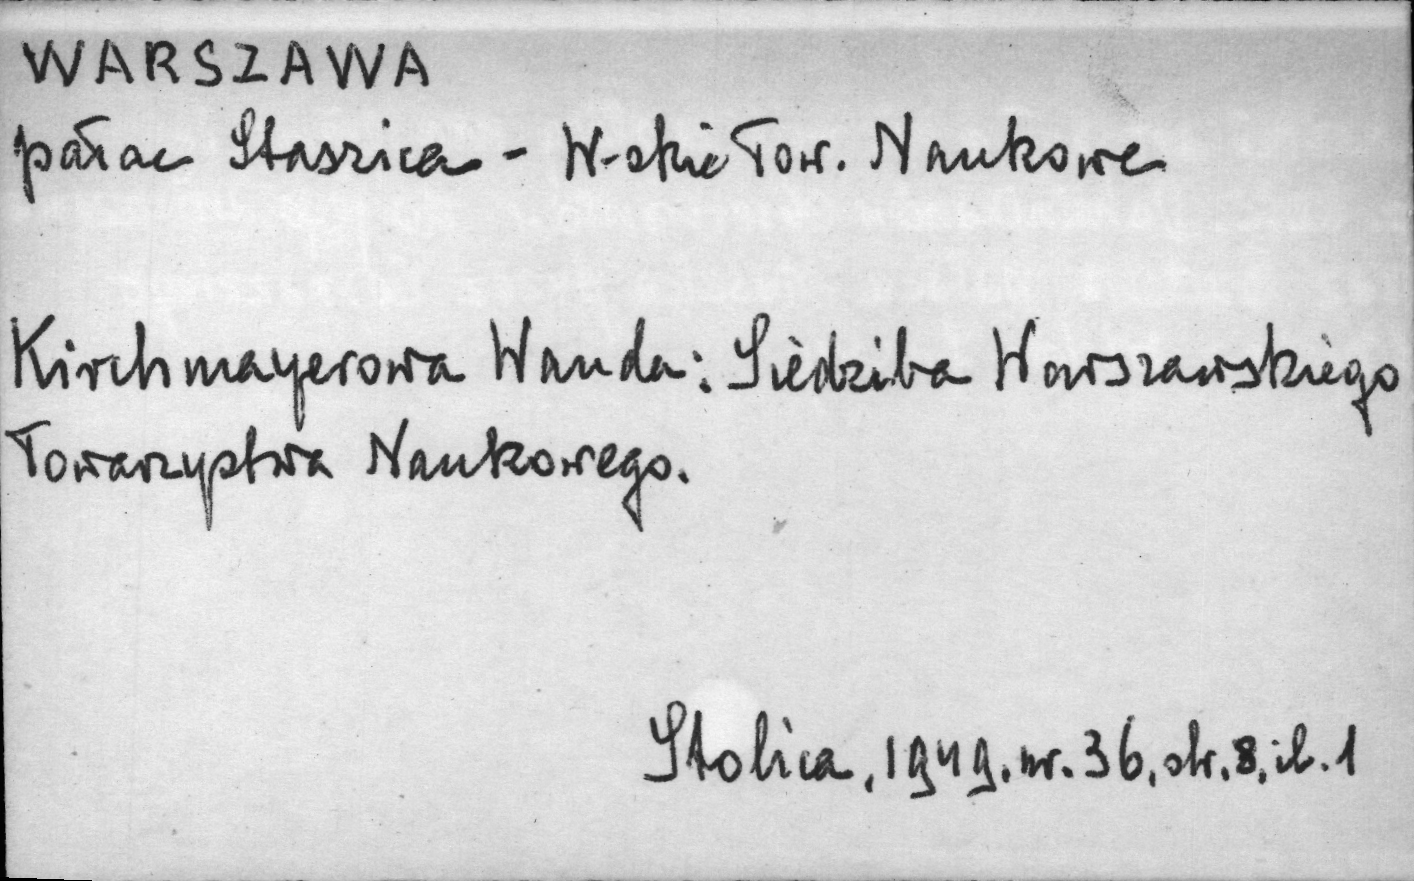 WARSZAWA
pałac Staszica - W-skie Tow. Naukowe
Kirchmayerowa Wanda: Siedziba Warszawskiego
Towarzystwa Naukowego.
Stolica, 1949, nr. 36, str. 8, il. 1